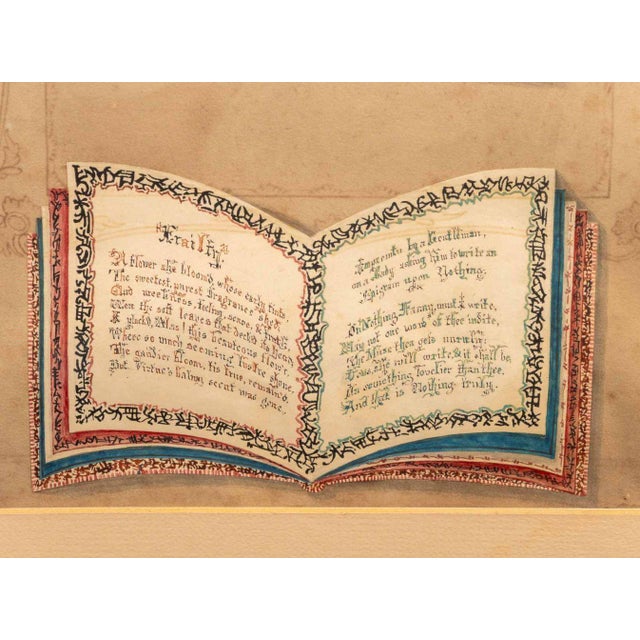 "Frailty"
A flower she bloom'd, whose early tints,
The sweetest, purest fragrance shed,
And weetness, feeling, sense, & truth,
Were the soft leaves that deck'd its head,
I pluck'd, Alas! this beauteous flow'r,
There so much seeming lustre shone,
The gaudier bloom, tis true, remain'd,
But Virtue's balmy scent was gone.
Impromtu by a Gentleman,
on a Lady asking him to write an
Epigram upon Nothing.
On Nothing, Fanny, must I write,
May not one word of thee indite,
The Muse then gets unruly;
she will write, & it shall be,
On something lovelier than thee,
And that is Nothing truly.